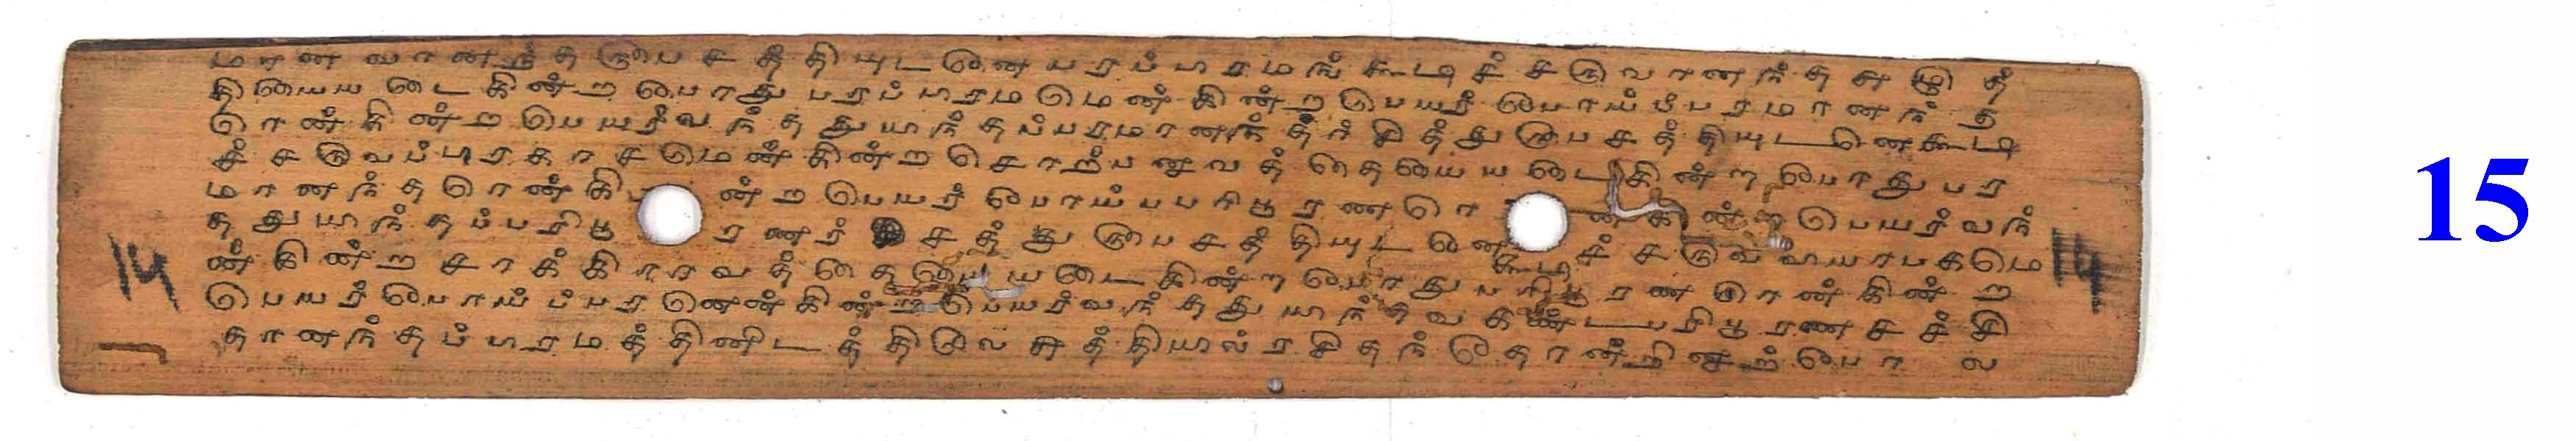 மான வானந்த ரூப சத்தியுடனே பரப்பிரமங் கூடிச் சருவானந்த சுழுத்
தியையடைகின்ற போது பரப்பிரமமென்கின்ற பெயர் போய்ப்பரமானந்த
ரென்கின்ற பெயர்வந்த துயாந்தப்பரமானந்தர் சித்து ரூப சத்தியுடனெகூடி
ச் சருவப்பிரகாசமென்கின்ற சொற்பனுவத்தையையடைகின்ற போது பர
மானந்தரென்கின்ற பெயர் போய்ப்பபரிபூரணரெ ன்கின்ற பெயர்வந்
த துயாந்தப்பரிபூரணர் சத்து ரூப சத்தியுடனே கூடிச் சருவ வியாபகமெ
ன்கின்ற சாக்கிராவத்தையையடைகின்ற போது பரிபூரண ரென்கின்ற
பெயர் போய்ப்பரனென்கின்ற பெயர்வந்த துயாந்தவகண்டபரிபூரண சச்சி
தானந்தப்பிரமத்தினிடத்திலே சுத்தியில்ரசிதந் தோன்றினாற்போல
14
14
15